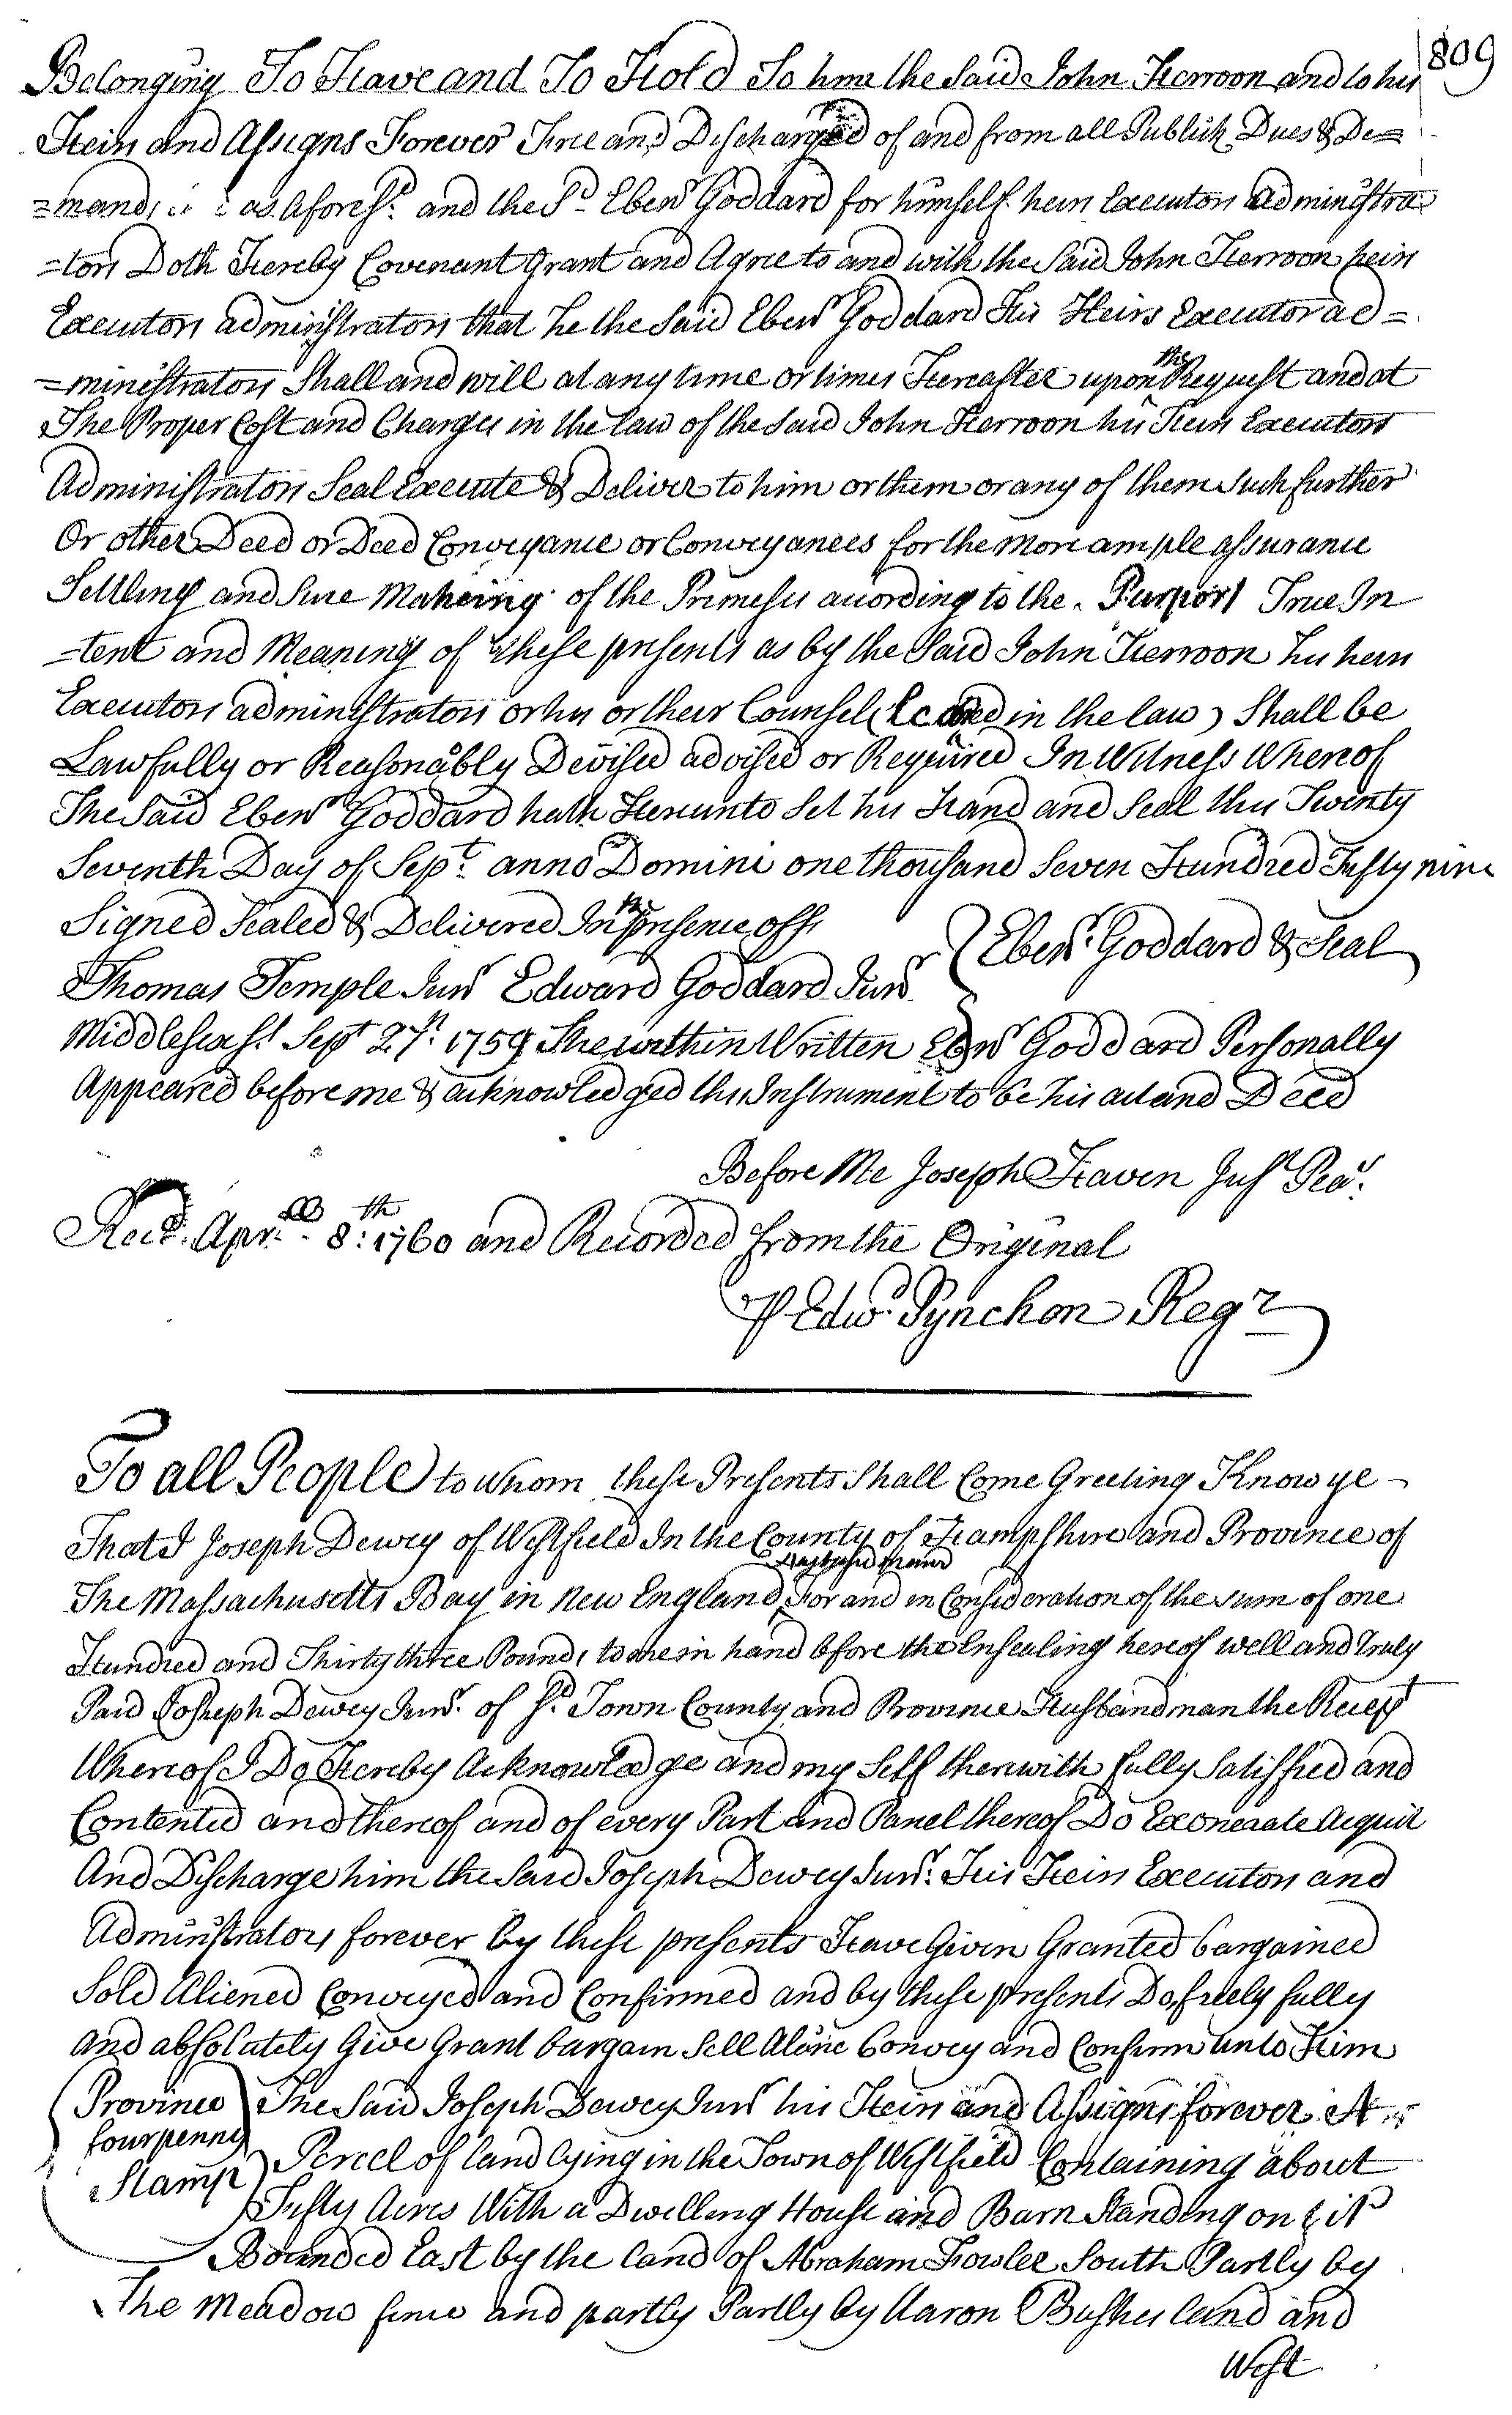 809
Belonging To Have and To Hold To him the Said John Herroon and to his
Heirs and Assigns Forever Free and Discharged of and from all Publick Dues & De=
=mands as Aforesd. and the Sd. Ebenr Goddard for himself heirs Executors Administra
=tors Doth Hereby Covenant Grant and Agree to and with the Said John Herroon heirs
Executors administrators that he the Said Ebenr Goddard His Heirs Executor ad=
=ministrators Shall and will at any time or times Hereafter upon the Request and at
The Proper Cost and Charges in the Law of the Said John Herroon his Heirs Executors
Administrators Seal Execute & Deliver to him or them or any of them Such further
Or other Deed or Deed Conveyance or Conveyances for the more ample assurance
Settling and Sure Makeing of the Premeses acording to the Purport True In
=tent and Meaning of these presents as by the Said John Herroon his heirs
Executors administrators or his or their Counsel (Learned in the law) Shall be
Lawfully or Reasonably Devised advised or Required In Witness Whereof
The Said Ebenr Goddard hath Hereunto Set his Hand and Seal this Twenty
Seventh Day of Sept. anno Domini one thousand Seven Hundred Fifty nine
Signed Sealed & Delivered In the presence off
Ebenr. Goddard & Seal
Thomas Temple Junr Edward Goddard Junr
Middlesex Ss. Sept 27th. 1759 The within Written Ebnr Goddard Personally
Appeared before me & acknowledged this Instrument to be his act and Deed
Before Me Joseph Haven Just Peas.
Recd. Aprll. 8th: 1760 and Recorded from the Original
P Edwd. Pynchon Regr
To all People to whom these Presents Shall Come Greeting Know ye -
That I Joseph Dewey of Westfield In the County of Hampshire and Province of
The Massachusetts Bay in New England Husbandman For and in Consideration of the sum of one
Hundred and Thirty three Pounds to me in hand bfore the Ensealing hereof well and Truly
Paid Joseph Dewey Junr. of Sd. Town County and Province Husbandman the Receipt
Whereof I Do Hereby Acknowledge and my Self therewith fully Satisfied and
Contented and thereof and of every Part and Parcel thereof Do Exonerate Acquit
And Discharge him the Said Joseph Dewey Junr. His Heirs Executors and
Administrators forever by these presents Have Given Granted bargained
Sold Aliened Conveyed and Confirmed and by these presents Do freely fully
and absolutely Give Grant bargain Sell Aliene Convey and Confirm unto Him
Province The Said Joseph Dewey Junr his Heirs and Assigns forever A
fourpenny Percel of land lying in the Town of Westfield Containing about
Stamp Fifty Acres With a Dwelling House and Barn Standing on it
Bounded East by the land of Abraham Fowler South Partly by
The Meadow fence and partly Partly by Aaron Bushes land and
West